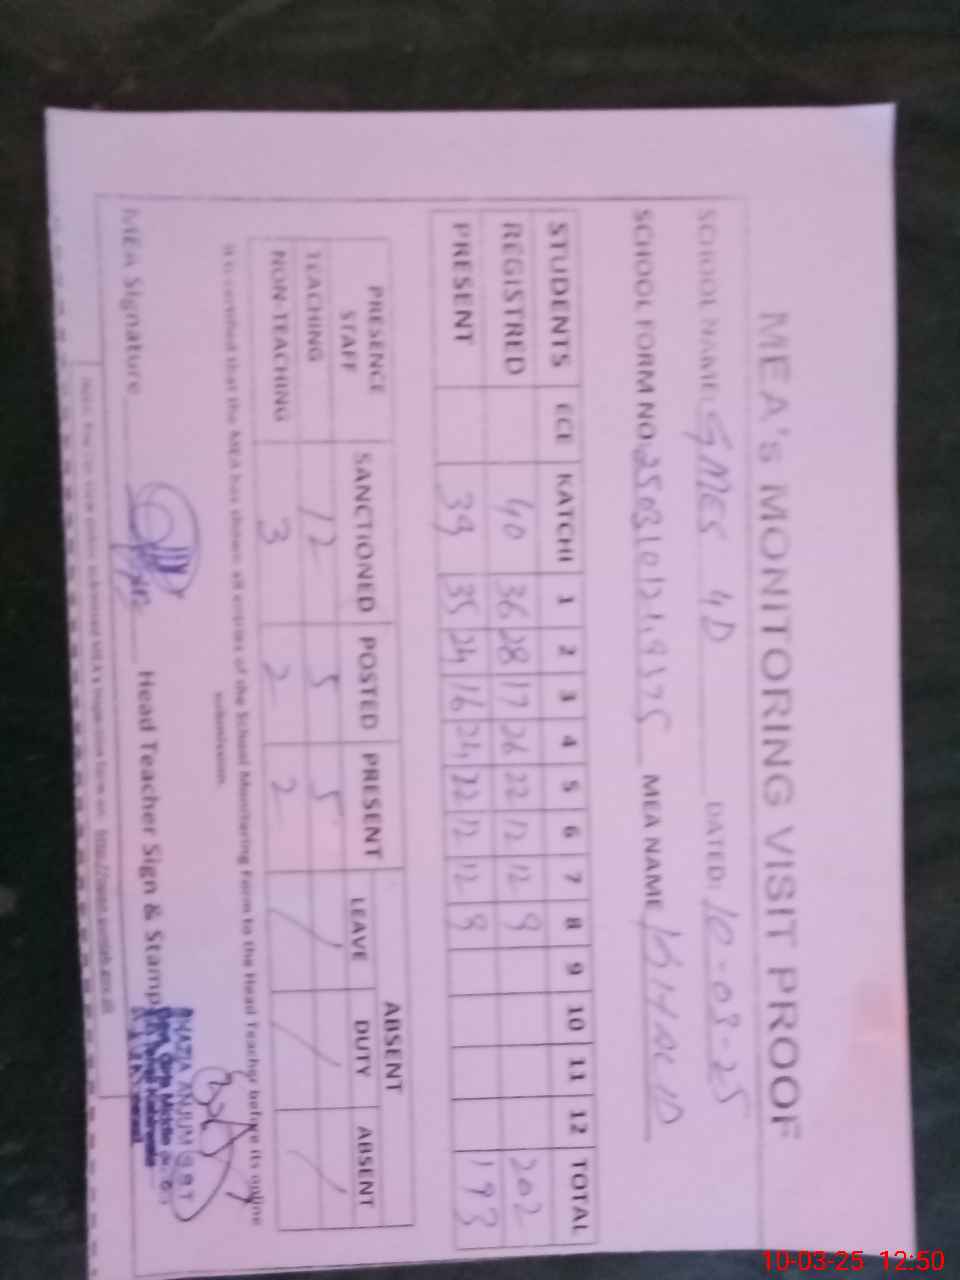 MEA's MONITORING VISIT PROOF
SCHOOL NAME: GMES 4D DATED: 10-03-25
SCHOOL FORM NO. MEA NAME
STUDENTS ECE KATCHI 1 2 3 4 5 6 7 8 9 10 11 12 TOTAL
REGISTRED 40 36 28 17 26 22 12 12 9 202
PRESENT 39 35 24 16 24 22 12 12 9 193
PRESENCE STAFF SANCTIONED POSTED PRESENT ABSENT
LEAVE DUTY ABSENT
TEACHING 12 5 5 /
NON-TEACHING 3 2 2 / /
It is certified that the MEA has shown all entries of the School Monitoring Form to the Head Teacher before its online
submission.
MEA Signature Head Teacher Sign & Stamp
SHAZIA ANJUM
Girls Middle
10-03-25 12:50